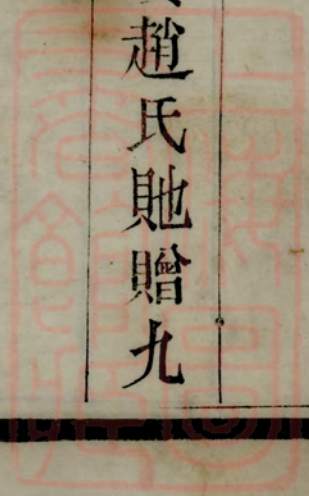 趙氏貤贈九